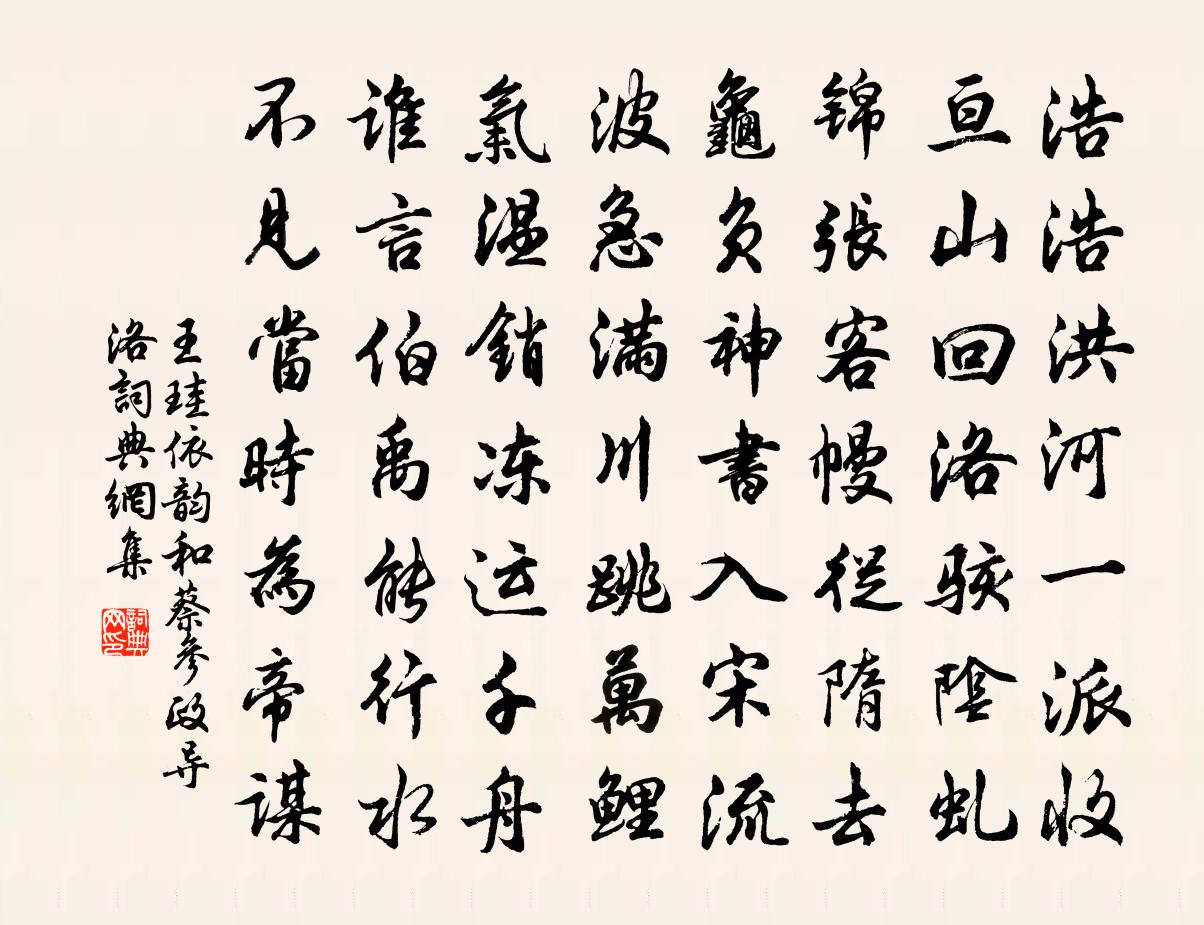 浩浩洪河一派收
亘山回洛骇陰虬
锦張客幔從隋去
龜负神書入宋流
波急满川跳萬鲤
氣温銷冻运千舟
谁言伯禹能行水
不見當時為帝谋
王珪依韵和蔡參政导
洛詞典網集
詞典网印